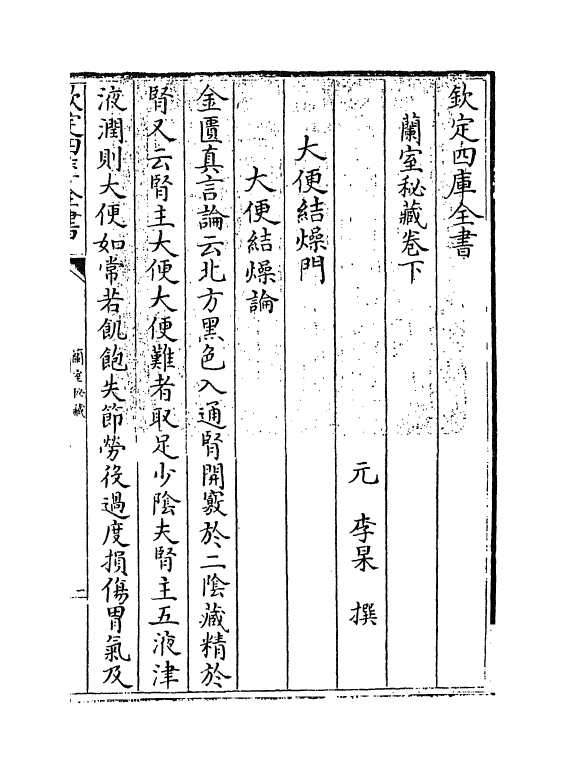 欽定四庫全書
蘭室秘藏卷下
元 李杲 撰
大便結燥門
大便結燥論
金匱真言論云北方黑色入通腎開竅於二陰藏精於
腎又云腎主大便大便難者取足少陰夫腎主五液津
液潤則大便如常若飢飽失節勞役過度損傷胃氣及
欽定四庫全書
蘭室秘藏